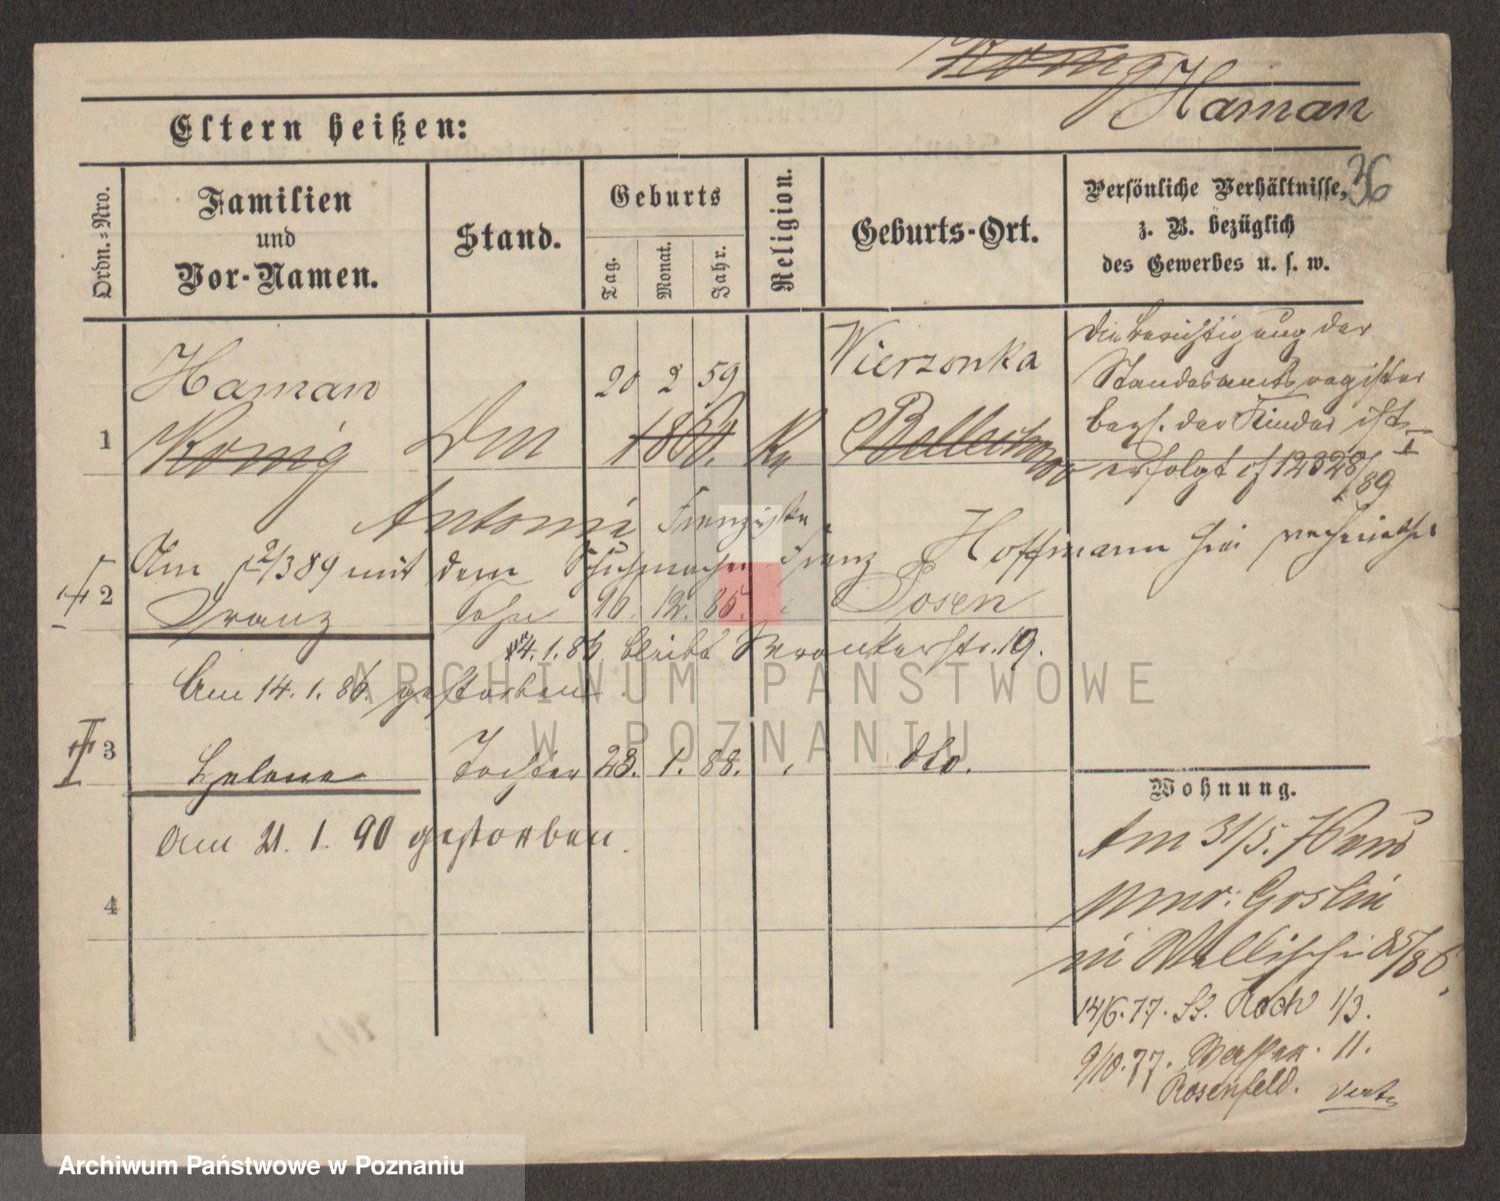 König
Haman
Eltern heißen:
36
Ordn.-Nro.
Familien
und
Vor-Namen.
Stand.
Geburts
Tag.
Monat.
Jahr.
Religion.
Geburts-Ort.
Persönliche Verhältnisse,
z. B. bezüglich
des Gewerbes u. s. w.
Haman
20 2 59
Wierzonka
Die Berichtigung der
Standesamtsregister
bezl. der Kinder ist
erfolgt cf 12328/89
1 König
Antonie Franziska
Am 12/3 89 mit dem Schuhmacher Franz Hoffmann hier verheirathet
2 Franz Sohn 10. 12. 85. Posen
4.1.86 bleibt Wronkerstr. 19.
Am 14. 1. 86. gestorben
3 Helene Tochter 23. 1. 88. dto.
Am 21. 1. 90 gestorben.
4
Wohnung.
Am 31/5.
Goslin
in Wallischei 85/86
14/6. 77. St. Roch 1/3.
9/10. 77. 11.
Rosenfeld. vert.
ARCHIWUM PAŃSTWOWE
W POZNANIU
Archiwum Państwowe w Poznaniu